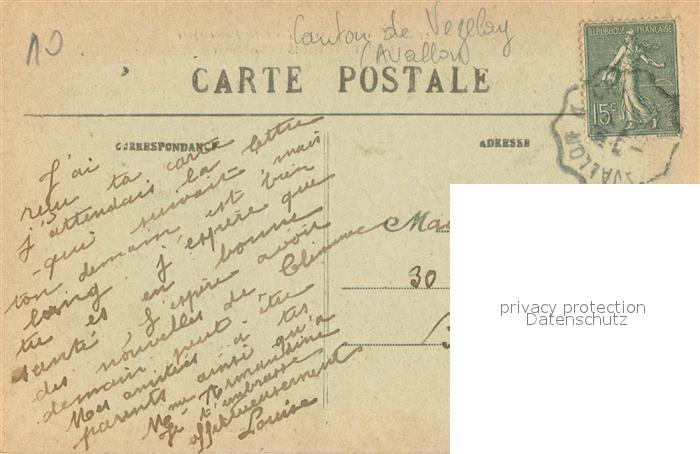 10
Canton de Vezelay
(Avallon
CARTE POSTALE
REPUBLIQUE FRANÇAISE
15c
POSTES
AVALLON
CORRESPONDANCE
ADRESSE
J'ai
reçu ta carte
j'attendais la lettre
qui suivait mais
ton demain est bien
long j'espère que
tu es en bonne
santé, J'espère avoir
des nouvelles de
demain peut être
Mes amitiés à tes
parents ainsi qu'à
Mme Armandine
Je t'embrasse
affectueusement
Louise
30
privacy protection
Datenschutz